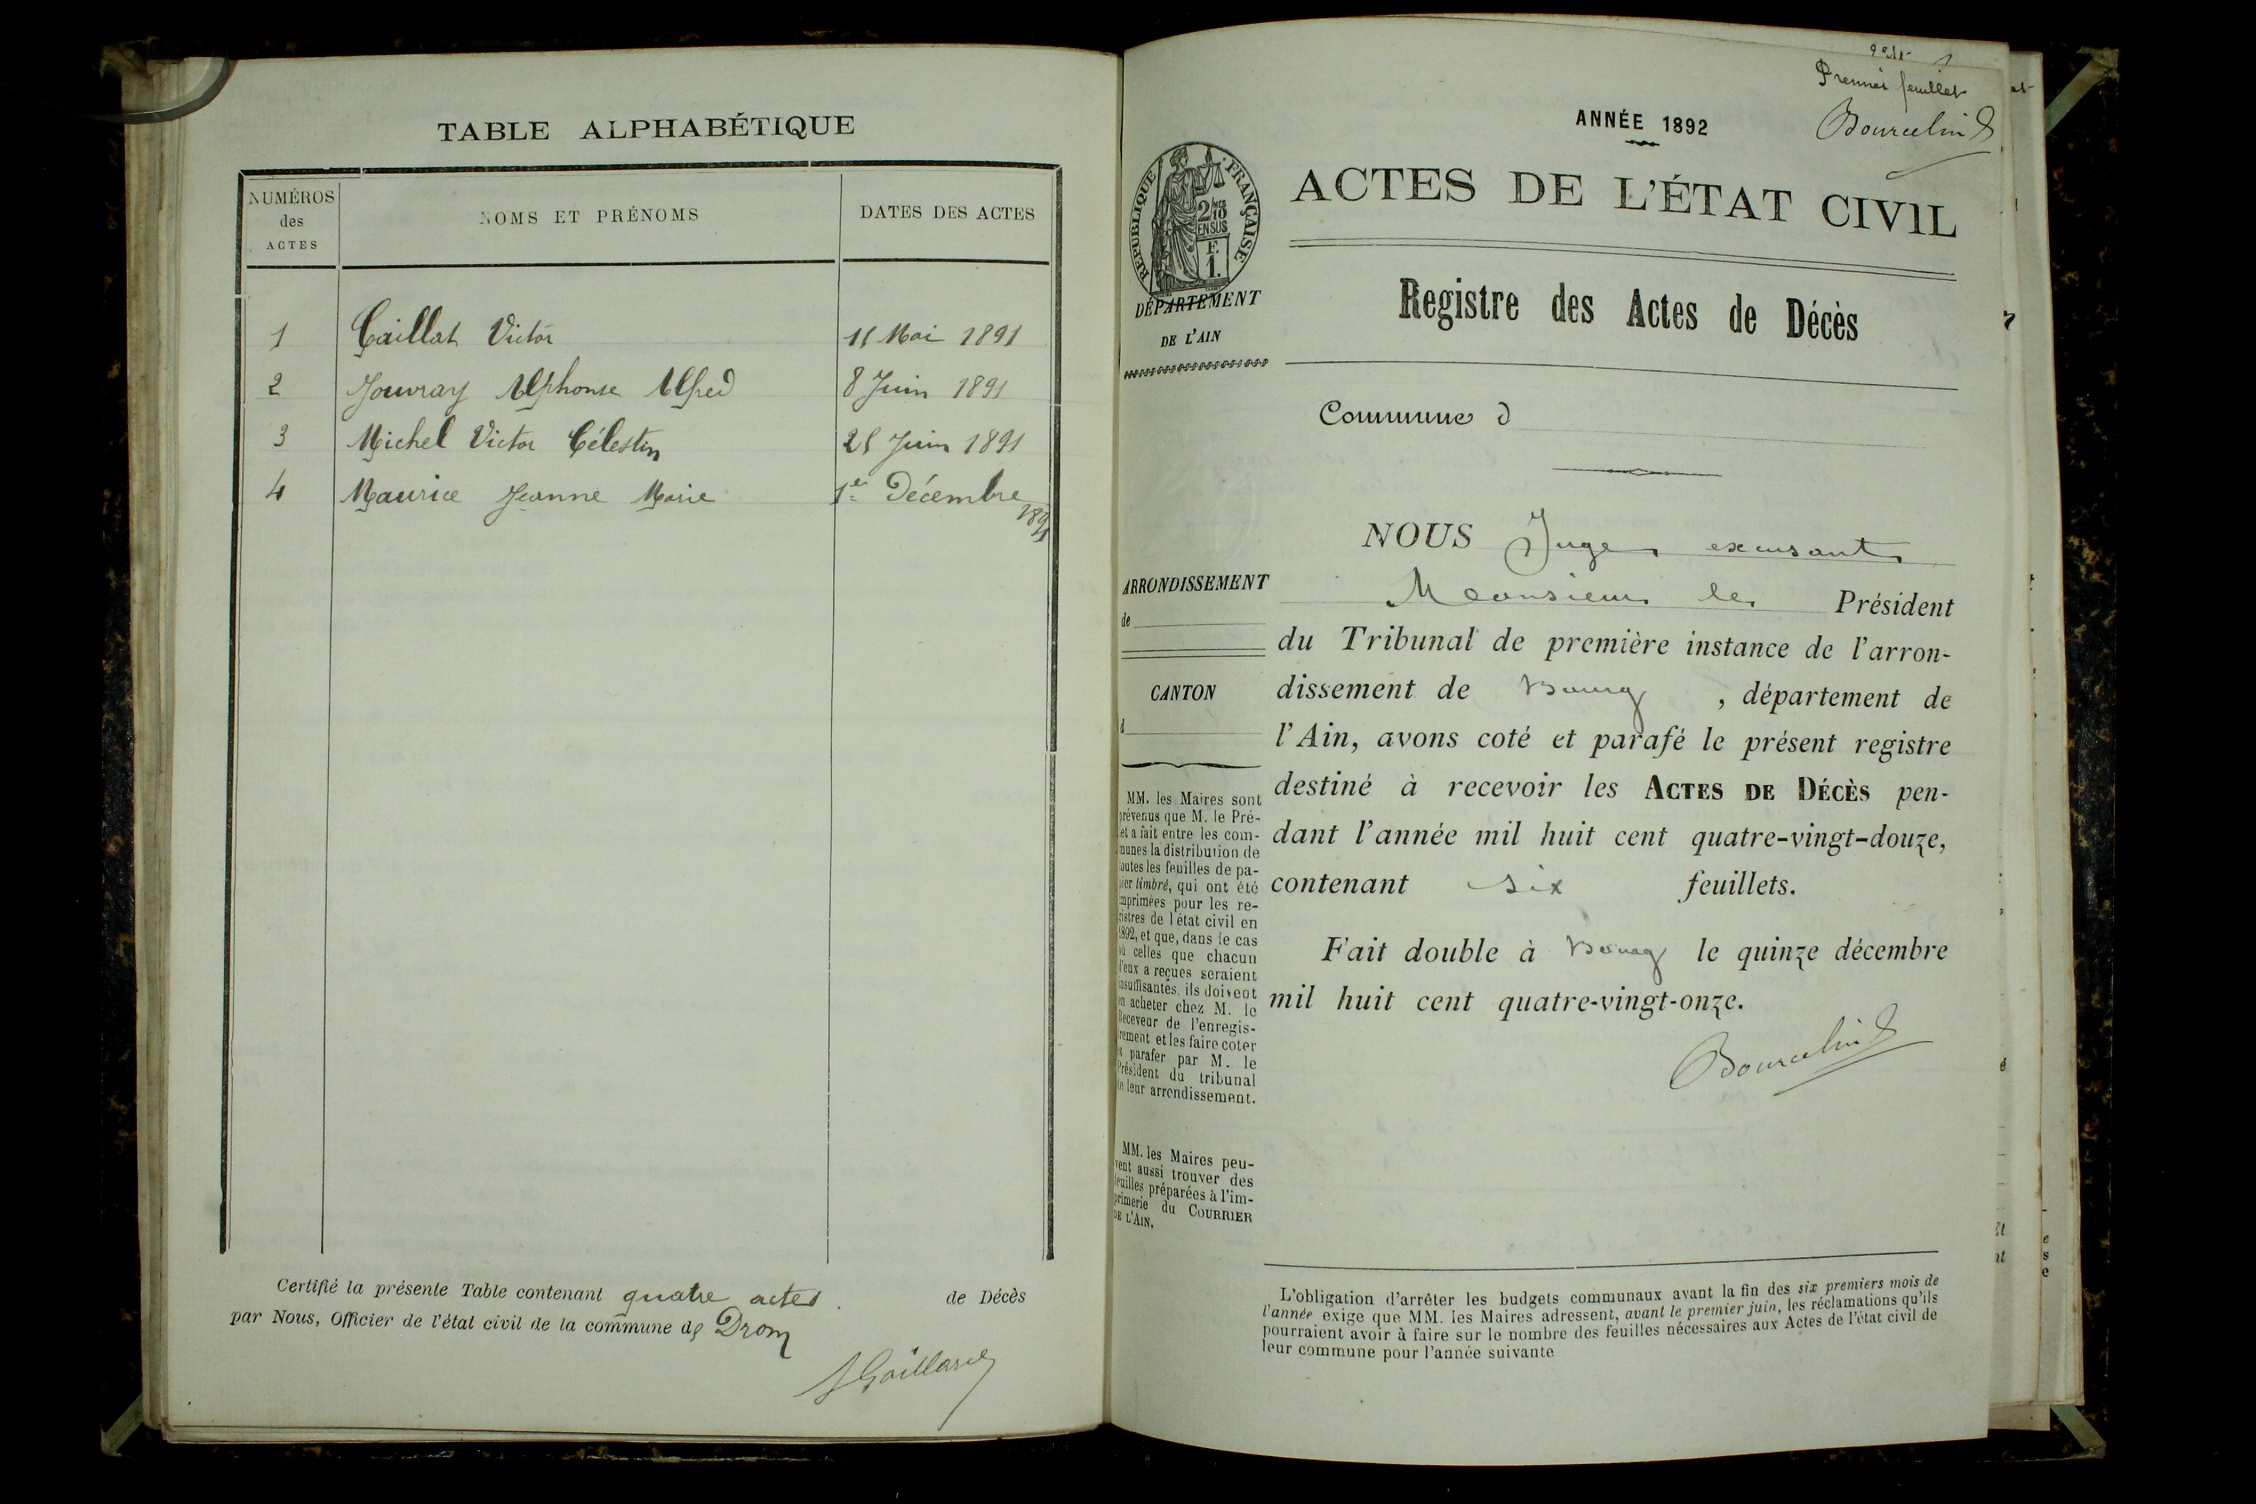 TABLE ALPHABÉTIQUE
NUMÉROS
des
ACTES
NOMS ET PRÉNOMS
DATES DES ACTES
1 Caillat Victor 11 Mai 1891
2 Jouvray Alphonse Alfred 8 Juin 1891
3 Michel Victor Célestin 25 Juin 1891
4 Maurice Jeanne Marie 1er Décembre
1891
Certifié la présente Table contenant quatre actes de Décès
par Nous, Officier de l'état civil de la commune de Drom
Gaillard
Premier feuillet
Bourcelin
ANNÉE 1892
RÉPUBLIQUE FRANÇAISE
2/10
EN SUS
F.
1.
ACTES DE L'ÉTAT CIVIL
DÉPARTEMENT
DE L'AIN
Registre des Actes de Décès
Commune d
ARRONDISSEMENT
de
CANTON
d
MM. les Maires sont
prévenus que M. le Pré-
fet a fait entre les com-
munes la distribution de
toutes les feuilles de pa-
pier timbré, qui ont été
imprimées pour les re-
gistres de l'état civil en
1892, et que, dans le cas
où celles que chacun
d'eux a reçues seraient
insuffisantes, ils doivent
en acheter chez M. le
Receveur de l'enregis-
trement et les faire coter
et parafer par M. le
Président du tribunal
de leur arrondissement.
MM. les Maires peu-
vent aussi trouver des
feuilles préparées à l'im-
primerie du COURRIER
DE L'AIN.
NOUS Juge excusant
Monsieur le Président
du Tribunal de première instance de l'arron-
dissement de Bourg, département de
l'Ain, avons coté et parafé le présent registre
destiné à recevoir les ACTES DE DÉCÈS pen-
dant l'année mil huit cent quatre-vingt-douze,
contenant six feuillets.
Fait double à Bourg le quinze décembre
mil huit cent quatre-vingt-onze.
Bourcelin
L'obligation d'arrêter les budgets communaux avant la fin des six premiers mois de
l'année exige que MM. les Maires adressent, avant le premier juin, les réclamations qu'ils
pourraient avoir à faire sur le nombre des feuilles nécessaires aux Actes de l'état civil de
leur commune pour l'année suivante